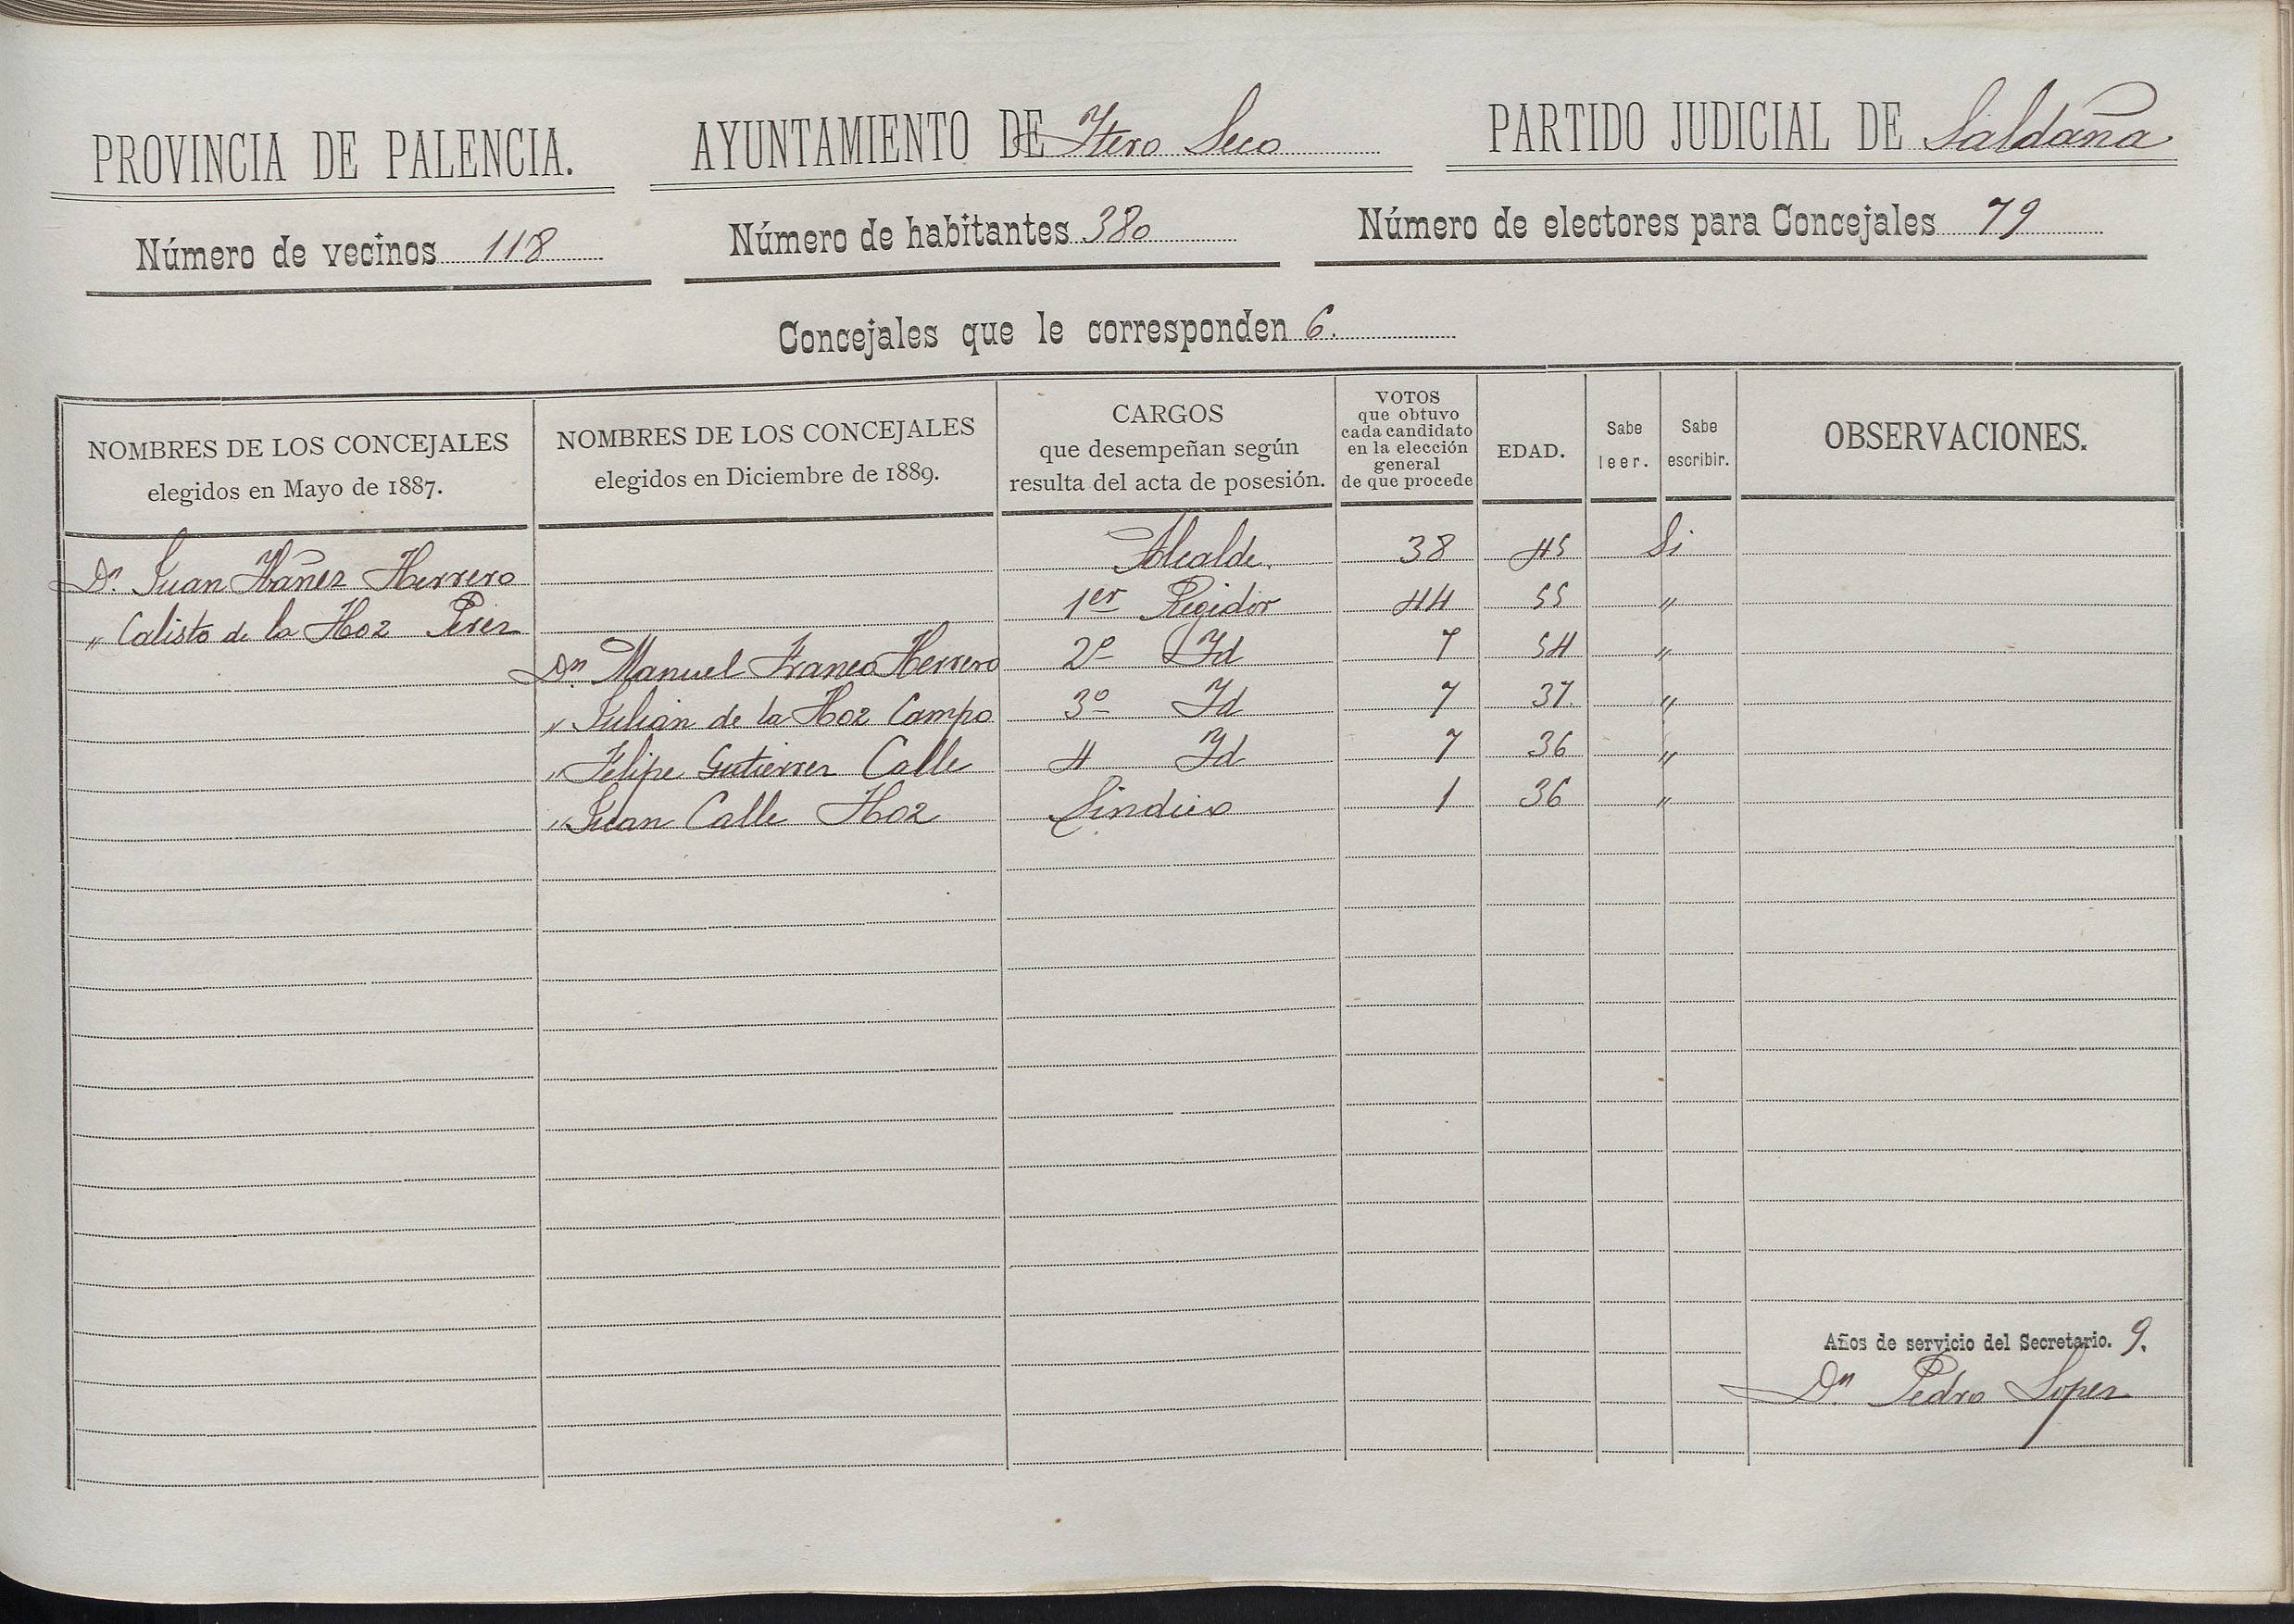 PROVINCIA DE PALENCIA. AYUNTAMIENTO DE Itero Seco PARTIDO JUDICIAL DE Saldaña
Número de vecinos 118 Número de habitantes 380 Número de electores para Concejales 79
Concejales que le corresponden 6.
NOMBRES DE LOS CONCEJALES
elegidos en Mayo de 1887.
NOMBRES DE LOS CONCEJALES
elegidos en Diciembre de 1889.
CARGOS
que desempeñan según
resulta del acta de posesión.
VOTOS
que obtuvo
cada candidato
en la elección
general
de que procede
EDAD.
Sabe
leer.
Sabe
escribir.
OBSERVACIONES.
Dn. Juan Ibañez Herrero Alcalde. 38 45 Si
" Calisto de la Hoz Perez 1er Regidor 44 55 "
Dn. Manuel Franco Herrero 2º Id 7 54 "
" Julian de la Hoz Campo 3º Id 7 37. "
" Felipe Gutierrez Calle 4 Id 7 36 "
" Juan Calle Hoz Sindico 1 36 "
Años de servicio del Secretario. 9.
Dn. Pedro Lopez